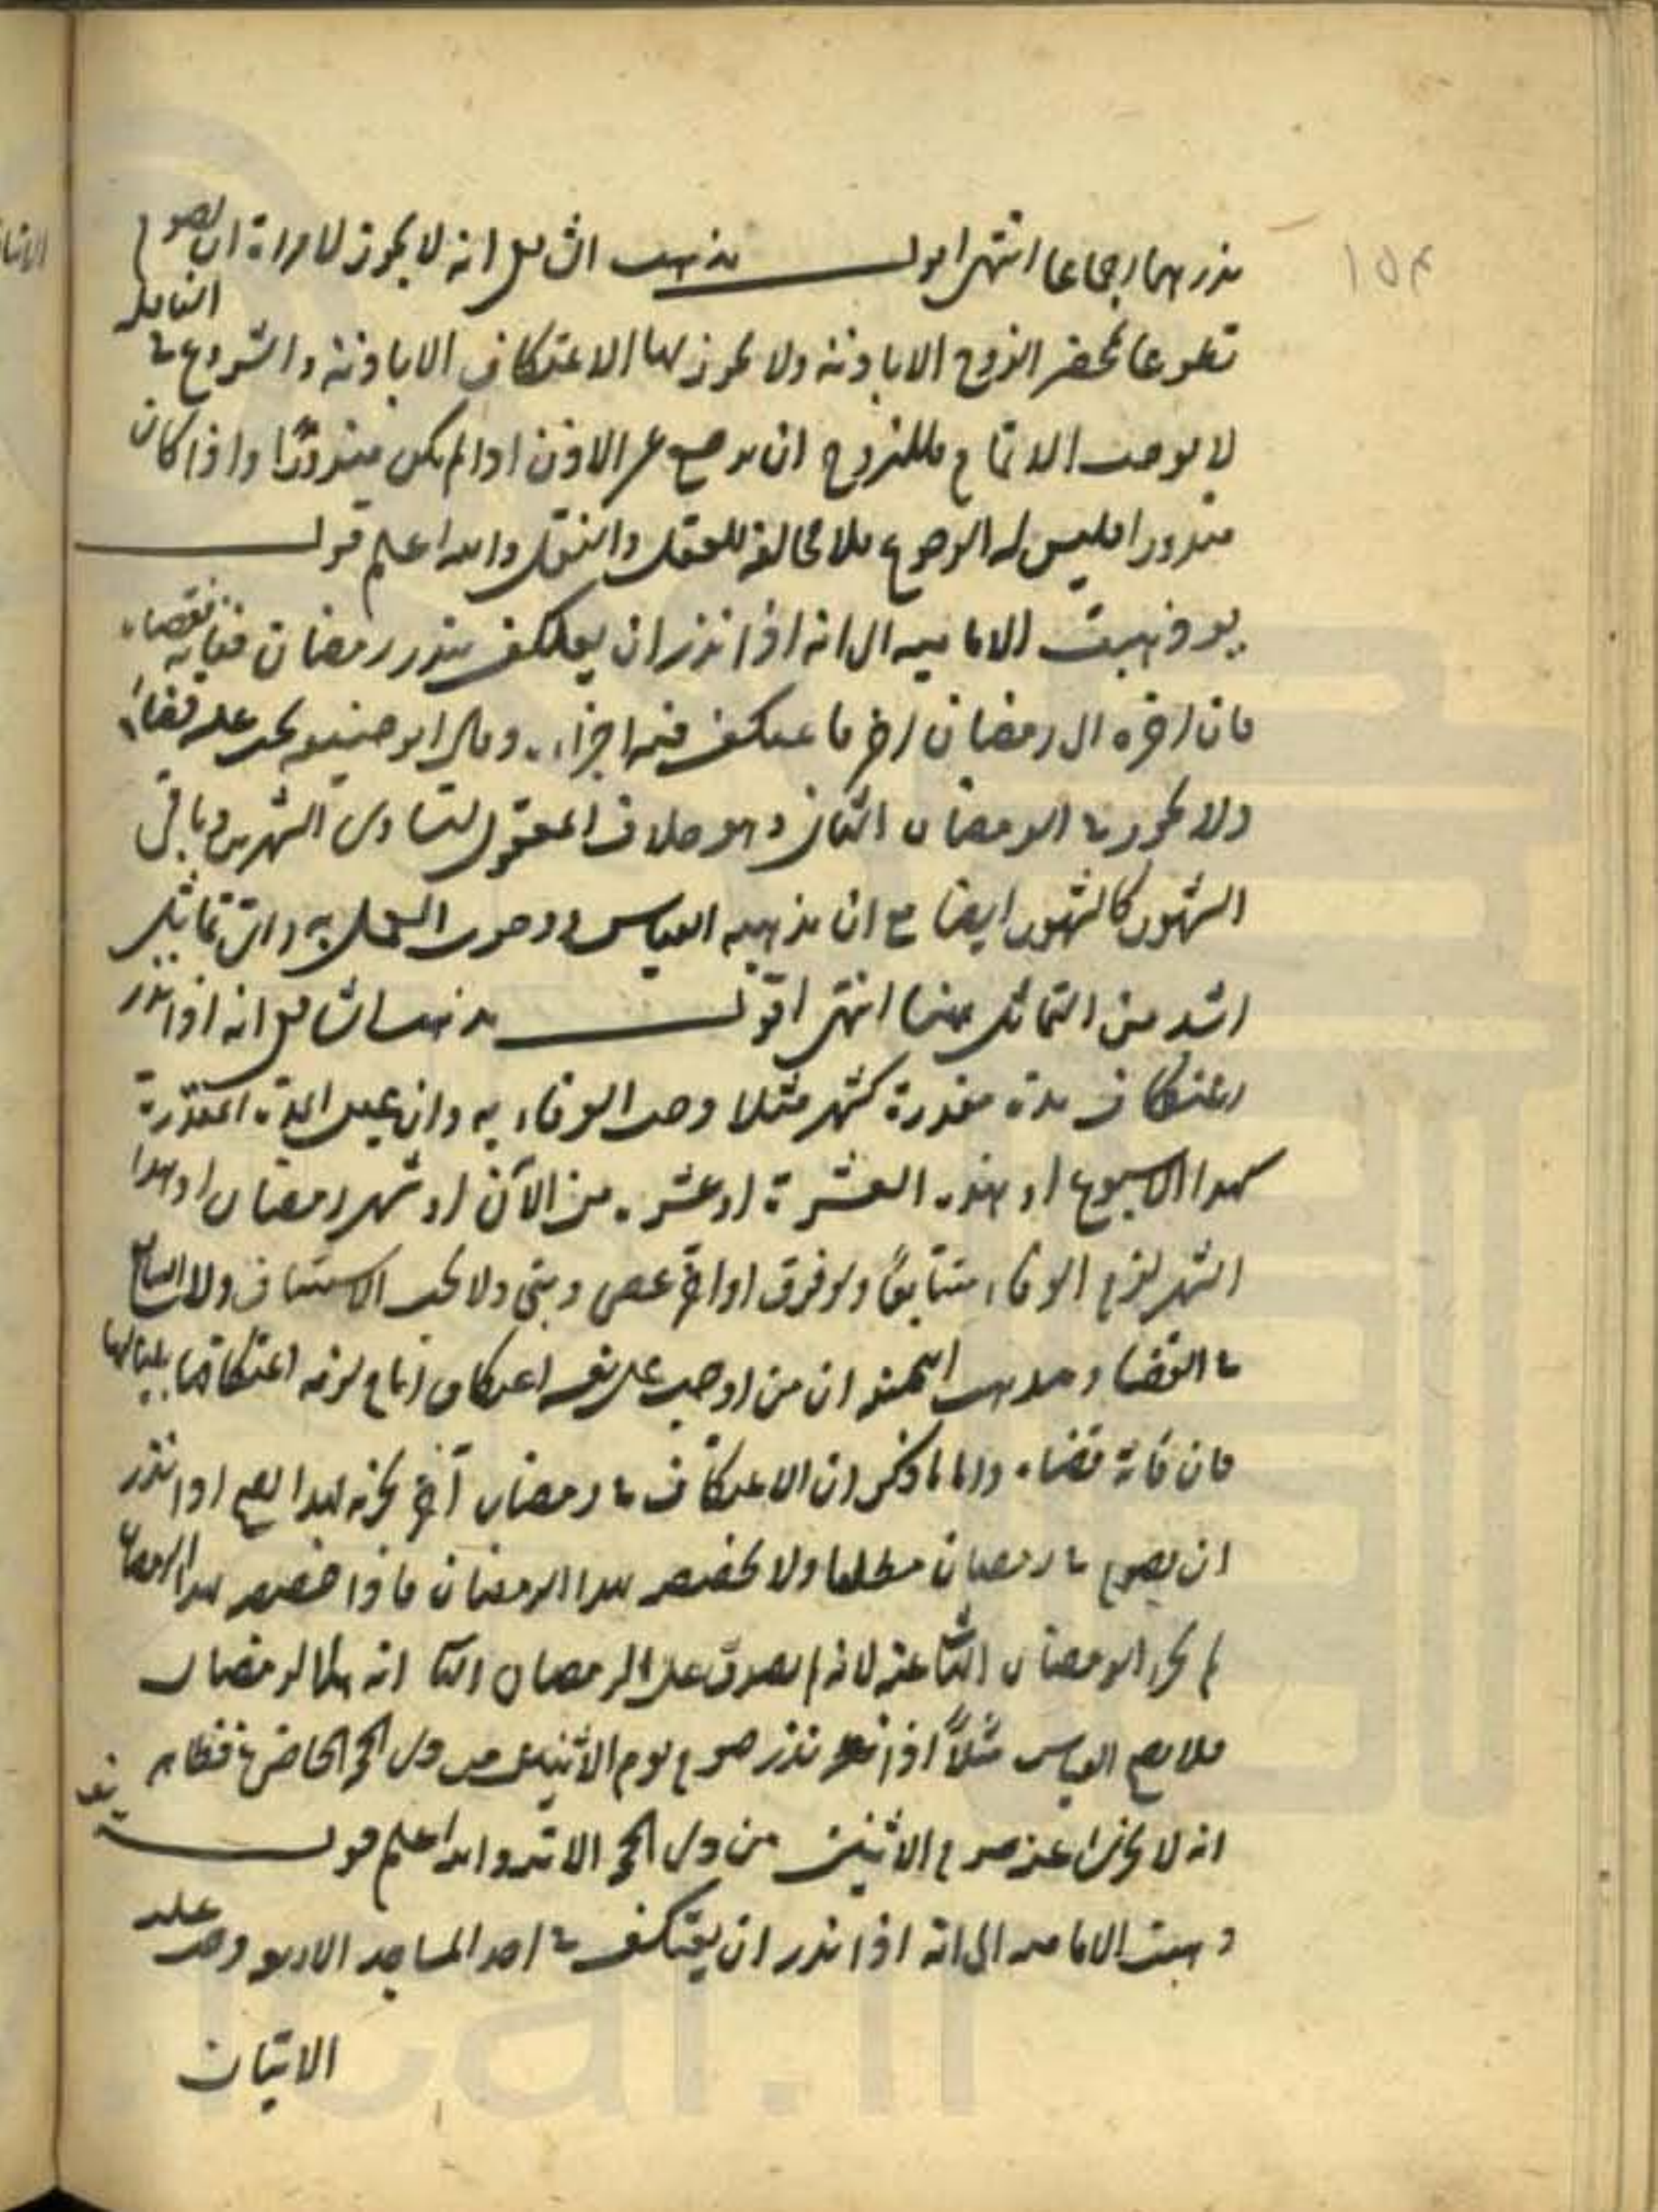 ١٥٤
نذرهما اجماعا انتهى اقول مذهب الشافعي انه لا يجوز للامراة ان تصوم
تطوعا بحضر الزوج الا باذنه ولا يجوز لها الاعتكاف الا باذنه والشروع في النافلة
لا يوجب الاتمام فللزوج ان يرجع عن الاذن اذا لم يكن منذورا واذا كان
منذورا فليس له الرجوع فلا مخالفة للعقل والنقل والله اعلم قول
يو ذهبت الامامية الى انه اذا نذر ان يعتكف شهر رمضان ففاته قضاه
فان اخره الى رمضان اخر فاعتكف فيه اجزاه وقال ابو حنيفة يجب عليه قضاؤه
ولا يجوز في الرمضان الثاني وهو خلاف المعقول لتساوي الشهرين وباقي
الشهور كالشهور ايضا مع ان مذهبه القياس ووجوب العمل به واي تماثل
اشد من التماثل هنا انتهى اقول مذهب الشافعي انه اذا نذر
اعتكاف مدة مقدرة كشهر مثلا وجب الوفاء به وان عين المدة المقدرة
كهذا الاسبوع او هذه العشرة او عشرة من الآن او شهر رمضان او هذا
الشهر لزم الوفاء متتابعا ولو فرق او اخر عصى وبنى ولا يجب الاستيناف ولا التتابع
في القضا ومذهب ابي حنيفة ان من اوجب على نفسه اعتكاف ايام لزمه اعتكافها بلياليها
فان فاته قضاه واما ما ذكر ان الاعتكاف في رمضان آخر يجزيه فهذا يصح اذا نذر
ان يصوم في رمضان مطلقا ولا يخصص بهذا الرمضان فاذا خصص بهذا الرمضان
لم يجز الرمضان الثاني عنه لانه لم يصدق على الرمضان الثاني انه هذا الرمضان
فلا يصح القياس مثلا اذا نذر صوم يوم الاثنين من ذي الحجة الحاضرة فظاهر
انه لا يجزي عنه صوم الاثنين من ذي الحجة الآتية والله اعلم قول يز
ذهبت الامامية الى انه اذا نذر ان يعتكف في احد المساجد الاربعة وجب عليه
الاتيان